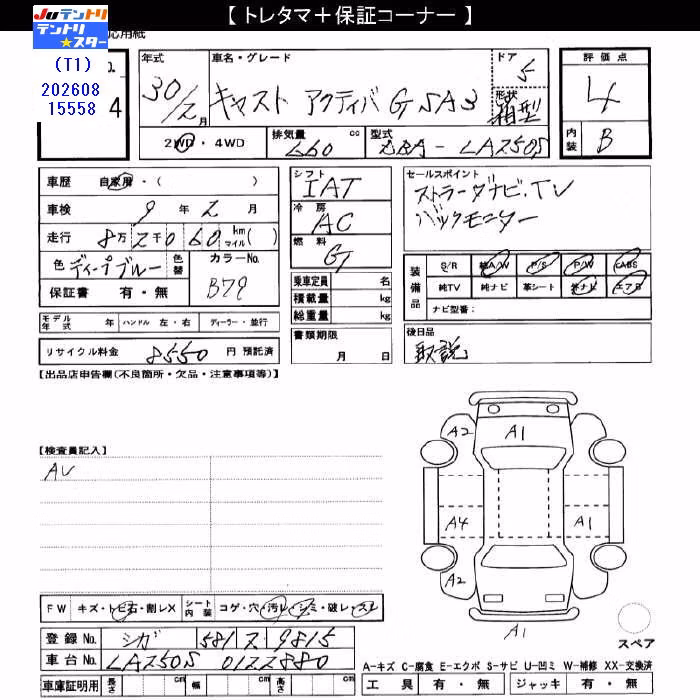 【 トレタマ＋保証コーナー 】
JUテントリ
テントリ★スター
応用紙
(T1)
202608
15558
4
年式
30/2月
車名・グレード
キャスト アクティバ G SA3
ドア
5
形状
箱型
2WD・4WD
排気量
660 cc
型式
DBA-LA250S
評価点
4
内装
B
車歴 自家用・( )
車検 9年 2月
走行 8万 2千0 60 km マイル( )
色 ディープブルー 色替
カラーNo.
B79
保証書 有・無
シフト
IAT
冷房
AC
燃料
G
乗車定員 名
積載量 kg
総重量 kg
セールスポイント
ストラーダナビ.TV
バックモニター
装備品
S/R 純A/W P/S P/W ABS
純TV 純ナビ 革シート 外ナビ エアB
ナビ型番:
モデル年式 年 ハンドル 左・右 ディーラー・並行
リサイクル料金 8550 円 預託済
書類期限
月 日
後日品
取説
【出品店申告欄(不良箇所・欠品・注意事項等)】
【検査員記入】
AU
A2
A1
A4
A1
A2
A1
スペア
FW キズ・トビ石・割レX シート内装 コゲ・穴・汚レ・シミ・破レ・スレ
登録No. シガ 581 ス 9815
車台No. LA250S 0122880
車庫証明用 長さ cm 幅 cm 高さ cm
A-キズ C-腐食 E-エクボ S-サビ U-凹ミ W-補修 XX-交換済
工具 有・無 ジャッキ 有・無